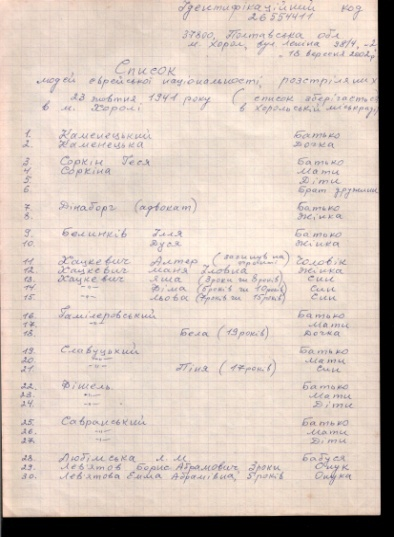 Ідентифікаційний код
26554411
37800, Полтавська обл
м. Хорол, вул Леніна
18 вересня 2002р
Список
людей єврейської національності, розстріляних
23 жовтня 1941 року (список зберігається
в м. Хоролі в Хорольській міськраді)
1. Каменецький Батько
2. Каменецька Дочка
3. Соркін Геся Батько
4. Соркіна Мати
5. Діти
6. Брат дружини
7. Дінаборг (адвокат) Батько
8. Жінка
9. Белинків Ілля Батько
10. Дуся Жінка
11. Хацкевич Алтер (загинув на) Чоловік
12. Хацкевич Маня Жінка
13. Хацкевич Яша (3роки чи 8років) Син
14. -"- Діма (5років чи 10років) Син
15. -"- Льова (7років чи 15років) Син
16. Батько
17. -"- Мати
18. Бела (19років) Дочка
19. Славуцький Батько
20. -"- Мати
21. -"- Піня (17років) Син
22. Фішель Батько
23. -"- Мати
24. -"- Діти
25. Савранський Батько
26. -"- Мати
27. -"- Діти
28. Любімська Л. М Бабуся
29. Лев'ятов Борис Абрамович, 3роки Онук
30. Лев'ятова Емма Абрамівна, 5років Онука